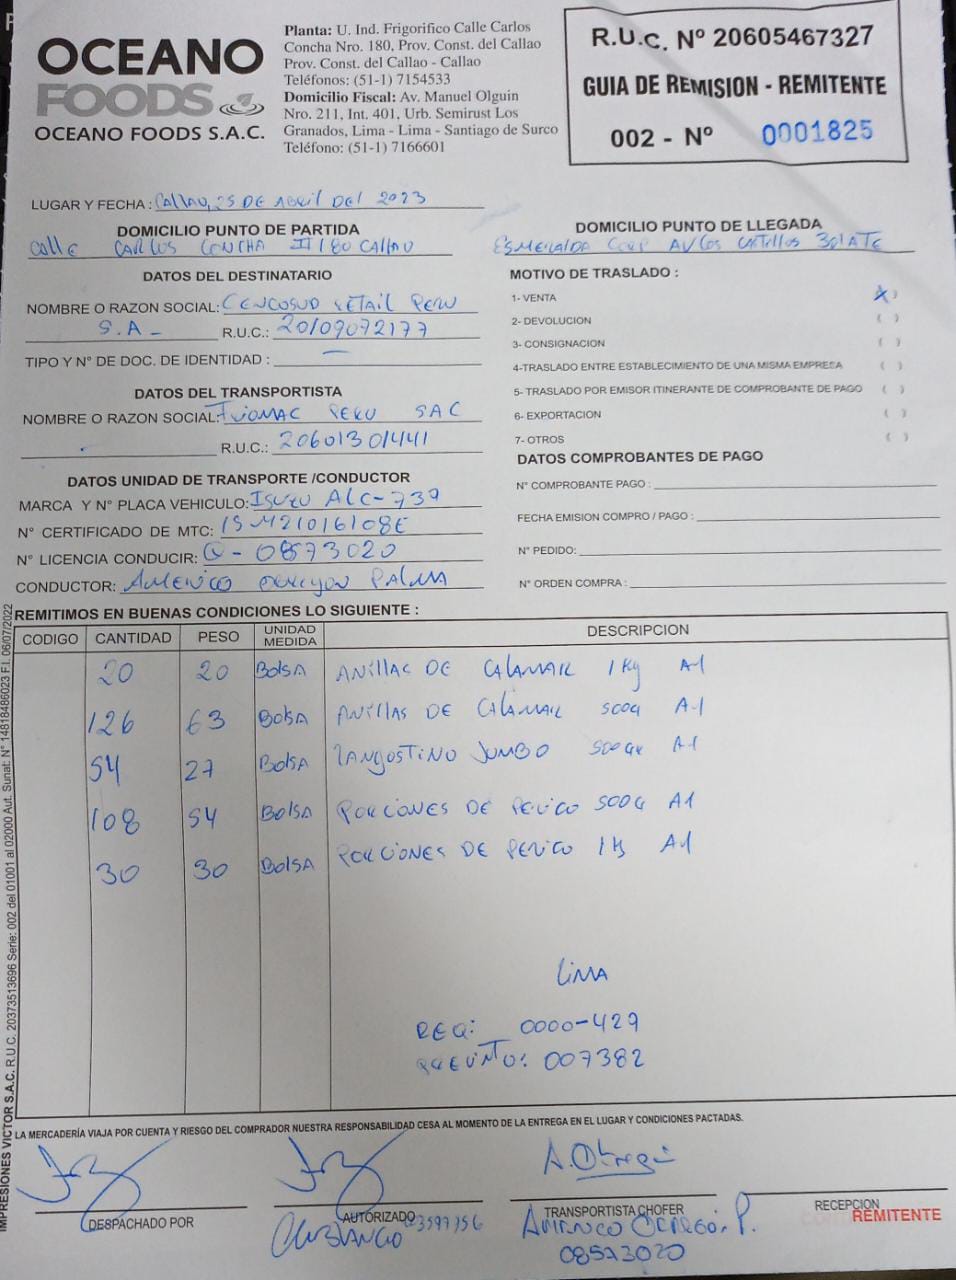 OCEANO
FOODS
OCEANO FOODS S.A.C.
Planta: U. Ind. Frigorifico Calle Carlos
Concha Nro. 180, Prov. Const. del Callao
Prov. Const. del Callao - Callao
Teléfonos: (51-1) 7154533
Domicilio Fiscal: Av. Manuel Olguin
Nro. 211, Int. 401, Urb. Semirust Los
Granados, Lima - Lima - Santiago de Surco
Teléfono: (51-1) 7166601
R.U.C. Nº 20605467327
GUIA DE REMISION - REMITENTE
002 - Nº 0001825
LUGAR Y FECHA : Callao, 25 DE Abril DEL 2023
DOMICILIO PUNTO DE PARTIDA
Calle CARLOS CONCHA # 180 CALLAO
DOMICILIO PUNTO DE LLEGADA
ESMERALDA CORP AV LOS CASTILLOS 301 ATE
DATOS DEL DESTINATARIO
NOMBRE O RAZON SOCIAL: CENCOSUD RETAIL PERU
S.A - R.U.C.: 20109072177
TIPO Y N° DE DOC. DE IDENTIDAD : —
MOTIVO DE TRASLADO :
1- VENTA (X)
2- DEVOLUCION ( )
3- CONSIGNACION ( )
4-TRASLADO ENTRE ESTABLECIMIENTO DE UNA MISMA EMPRESA ( )
5- TRASLADO POR EMISOR ITINERANTE DE COMPROBANTE DE PAGO ( )
6- EXPORTACION ( )
7- OTROS ( )
DATOS DEL TRANSPORTISTA
NOMBRE O RAZON SOCIAL: PERU SAC
R.U.C.: 20601301441
DATOS UNIDAD DE TRANSPORTE /CONDUCTOR
MARCA Y N° PLACA VEHICULO: ISUZU ALC-739
N° CERTIFICADO DE MTC: 15M21016108E
N° LICENCIA CONDUCIR: Q - 08573020
CONDUCTOR: AMERICO OBREGON PALMA
DATOS COMPROBANTES DE PAGO
N° COMPROBANTE PAGO :
FECHA EMISION COMPRO / PAGO :
N° PEDIDO:
N° ORDEN COMPRA :
REMITIMOS EN BUENAS CONDICIONES LO SIGUIENTE :
CODIGO CANTIDAD PESO UNIDAD MEDIDA DESCRIPCION
20 20 BolsA ANILLAS DE CALAMAR 1 Kg A-1
126 63 BolsA ANILLAS DE CALAMAR 500G A-1
54 27 BolsA LANGOSTINO JUMBO 500Gr A-1
108 54 BolsA PORCIONES DE PERICO 500G A1
30 30 BolsA PORCIONES DE PERICO 1 Kg A1
LIMA
REQ: 0000-429
PRECINTO: 007382
LA MERCADERÍA VIAJA POR CUENTA Y RIESGO DEL COMPRADOR NUESTRA RESPONSABILIDAD CESA AL MOMENTO DE LA ENTREGA EN EL LUGAR Y CONDICIONES PACTADAS.
A. Obregon
DESPACHADO POR
AUTORIZADO
TRANSPORTISTA CHOFER
RECEPCION
REMITENTE
Americo Obregon P.
08573020
IMPRESIONES VICTOR S.A.C. R.U.C. 20373513696 Serie: 002 del 01001 al 02000 Aut. Sunat: N° 14818486023 F.I. 06/07/2022